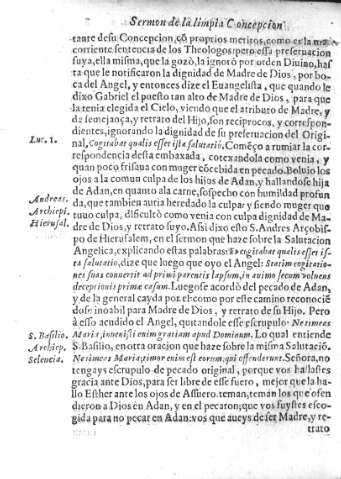 Sermon de la limpia Concepcion
tante de su Concepcion, cõ proprios meritos, como es la mas
corriente sentencia de los Theologos: pero essa preseruacion
suya, ella misma, que la gozò, la ignorò por orden Diuino, has
ta que le notificaron la dignidad de Madre de Dios, por bo-
ca del Angel, y entonces dize el Euangelista, que quando le
dixo Gabriel el puesto tan alto de Madre de Dios, para que
la tenia elegida el Cielo, viendo que el atributo de Madre, y
de semejança, y retrato del Hijo, son reciprocos, y correspon-
dientes, ignorando la dignidad de su preseruacion del Origi-
Luc. 1.
nal, Cogitabat qualis esset ista salutatio. Começò a rumiar la cor-
respondencia desta embaxada, cotexandola como venia, y
quan poco frisaua con muger cõcebida en pecado. Boluio los
ojos a la comun culpa de los hijos de Adan, y hallandose hija
de Adan, en quanto a la carne, sospechò con humildad profun
Andreas
Archiepi.
Hierusal.
da, que tambien auria heredado la culpa: y siendo muger que
tuuo culpa, dificultò como venia con culpa dignidad de Ma-
dre de Dios, y retrato suyo. Assi dixo esto S. Andres Arçobis-
po de Hierusalem, en el sermon que haze sobre la Salutacion
Angelica, explicando estas palabras: Et cogitabat qualis esset is-
ta salutatio, dize que luego que oyo el Angel: Statim cogitatio-
nes suas conuertit ad primi parentis lapsum, in animo secum voluens
deceptionis primæ casum. Luego se acordò del pecado de Adan,
y de la general cayda por el: como por este camino reconociē
dose inoabil para Madre de Dios, y retrato de su Hijo. Pero
à esso acudio el Angel, quitandole esse escrupulo: Ne timeas
S. Basilio.
Archiep.
Selencia.
Maria, inuenisti enim gratiam apud Dominum. Lo qual entiende
S. Basilio, en otra oracion que haze sobre la misma Salutaciõ.
Ne timeas Maria, timor enim est eorum, qui offenderunt. Señora, no
tengays escrupulo de pecado original, porque vos hallastes
gracia ante Dios, para ser libre de esse fuero, mejor que la ha-
llo Esther ante los ojos de Assuero. teman, teman los que ofen
dieron a Dios en Adan, y en el pecaron; que vos fuystes esco-
gida para no pecar en Adan: vos que aueys de ser Madre, y re-
trato